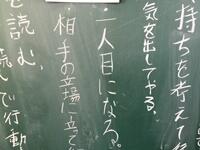 持ちを考えて
気を出してやる。
一人目になる。
相手の立場に立って
を読む、
んで行動